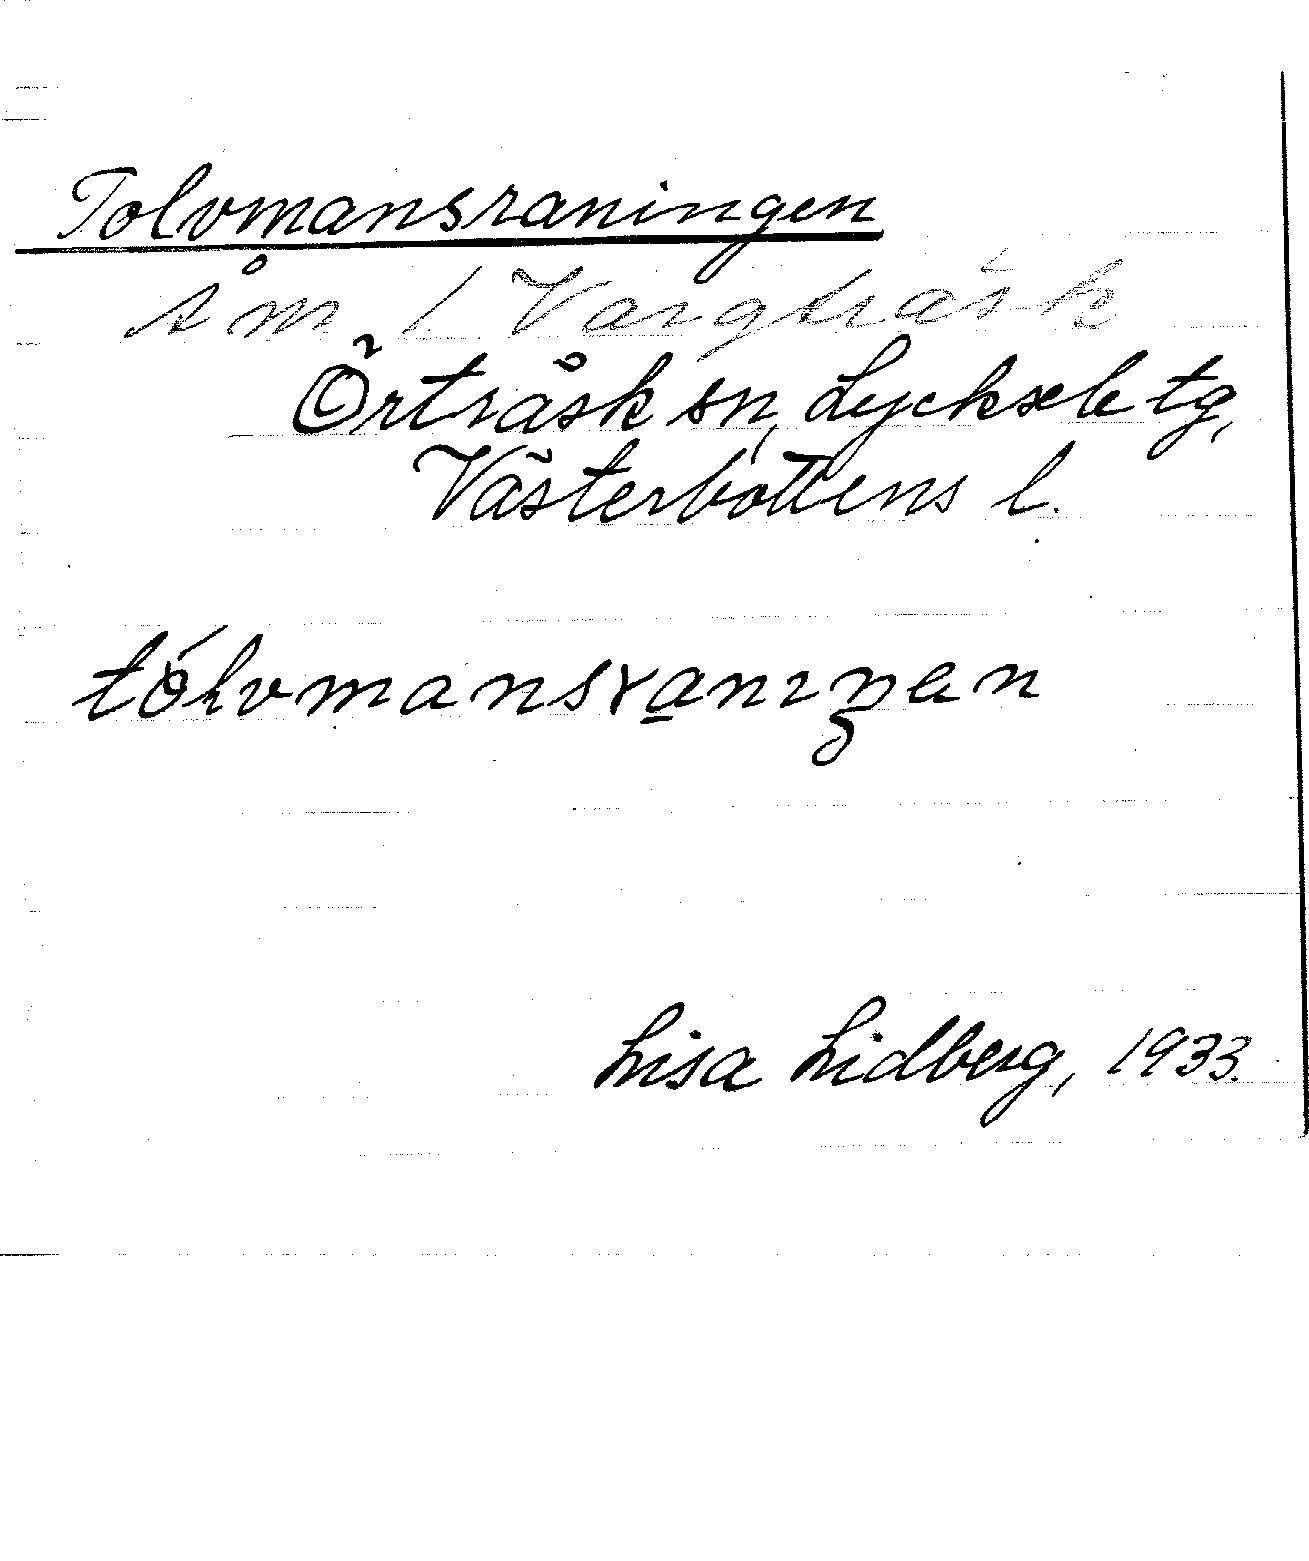 Tolvmansraningen
åm i Vargträsk
Örträsk sn, Lycksele tg,
Västerbottens l.
tólvmansranıŋen
Lisa Lidberg, 1933.